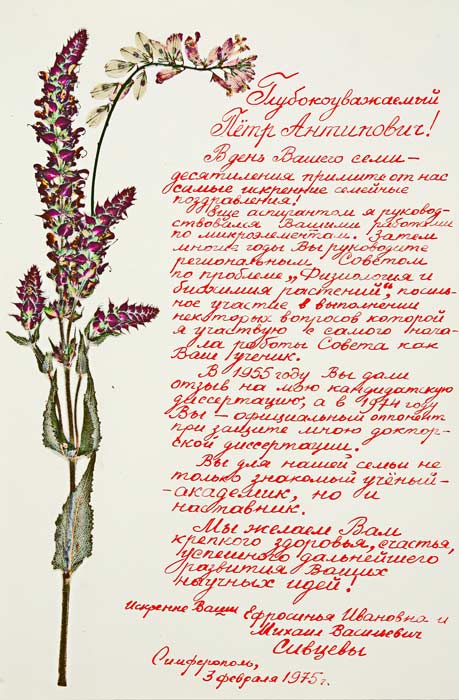 Глубокоуважаемый
Пётр Антипович!
В день Вашего семи-
десятилетия примите от нас
самые искренние семейные
поздравления!
Еще аспирантом я руковод-
ствовался Вашими работами
по микроэлементам. Затем
многие годы Вы руководите
региональным Советом
по проблеме „Физиология и
биохимия растений", посиль-
ное участие в выполнении
некоторых вопросов которой
я участвую с самого нача-
ла работы Совета как
Ваш ученик.
В 1955 году Вы дали
отзыв на мою кандидатскую
диссертацию, а в 1974 году
Вы – официальный оппонент
при защите мною доктор-
ской диссертации.
Вы для нашей семьи не
только знакомый учёный-
-академик, но и
наставник.
Мы желаем Вам
крепкого здоровья, счастья,
успешного дальнейшего
развития Ваших
научных идей!
Искренне Ваши Ефросинья Ивановна и
Михаил Васильевич
Сивцевы
Симферополь,
3 февраля 1975 г.